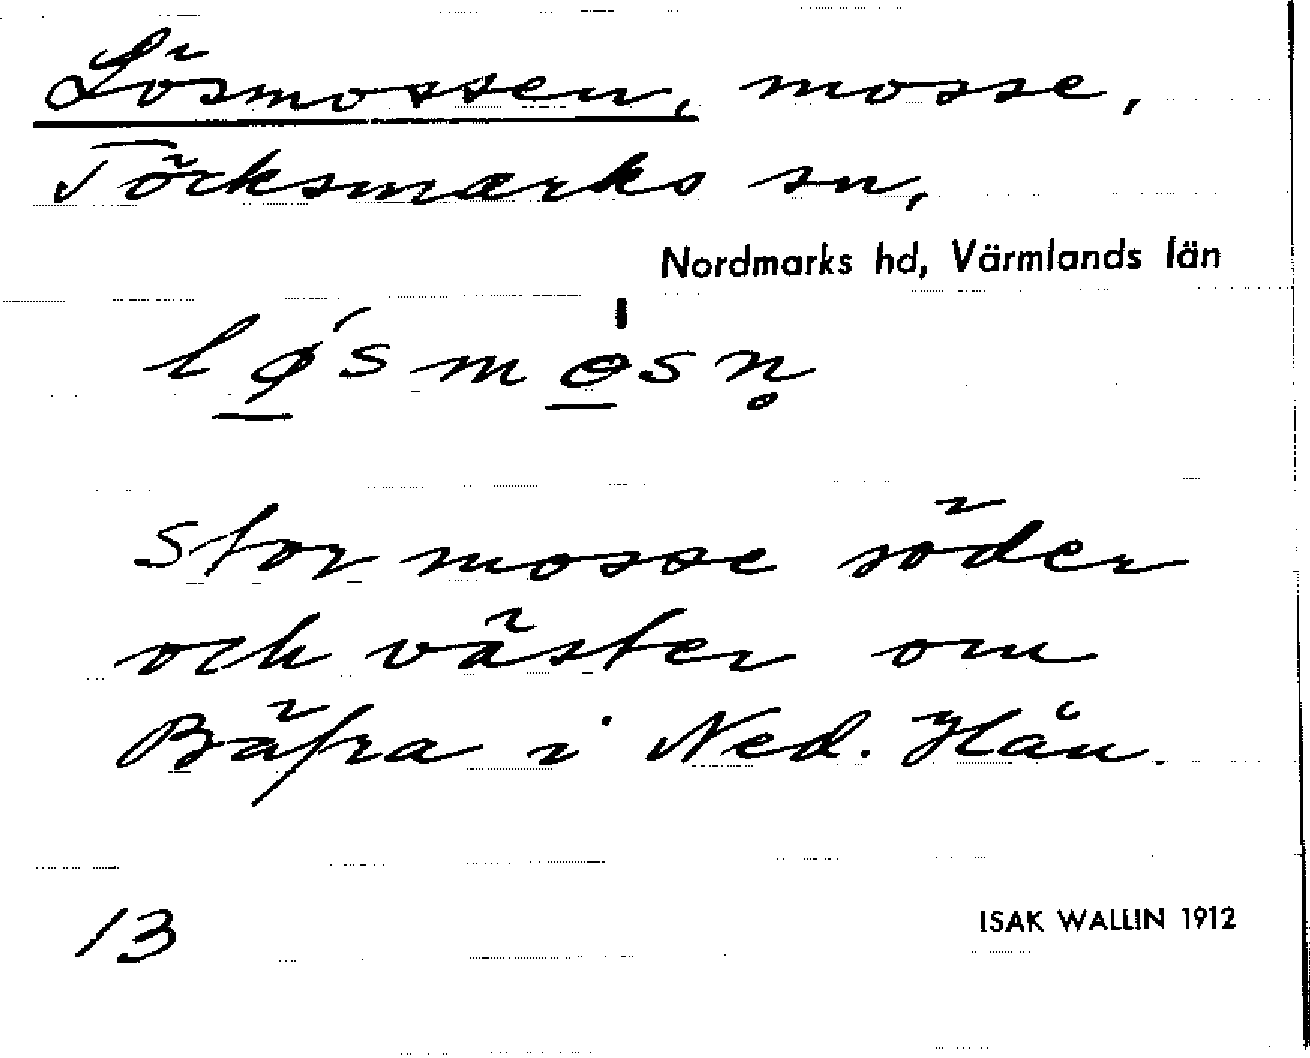 Lösmossen, mosse,
Töcksmarks sn,
Nordmarks hd, Värmlands län
lø̲´smo̲sn̥
Stor mosse söder
och väster om
Bäfra i Ned. Hån.
13
ISAK WALLIN 1912